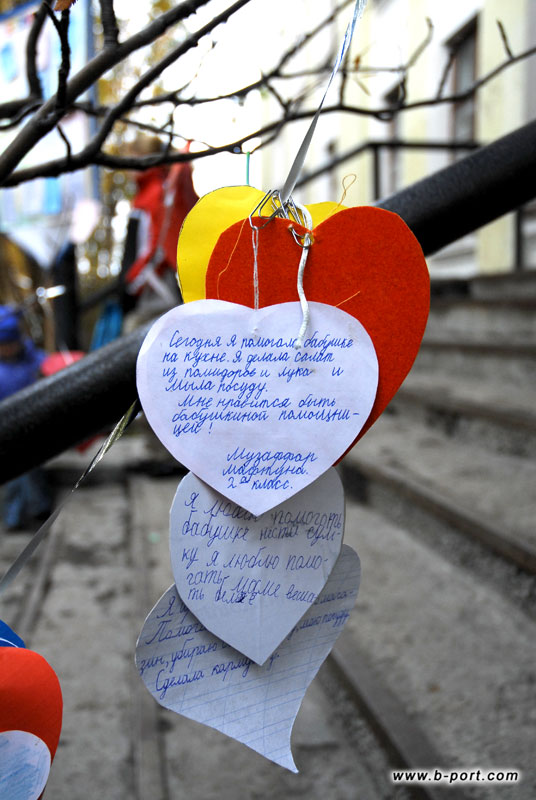 Сегодня я помогала бабушке
на кухне. Я делала салат
из помидоров и лука и
мыла посуду.
Мне нравится быть
бабушкиной помощни-
цей!
Музаффар
Мафтуна.
2а класс.
Я люблю помогать
бабушке нести сум-
ку я люблю помо-
гать маме вешать
ть бельё
Я
Помога
зин, убираю посуду
Сделала корму
www.b-port.com